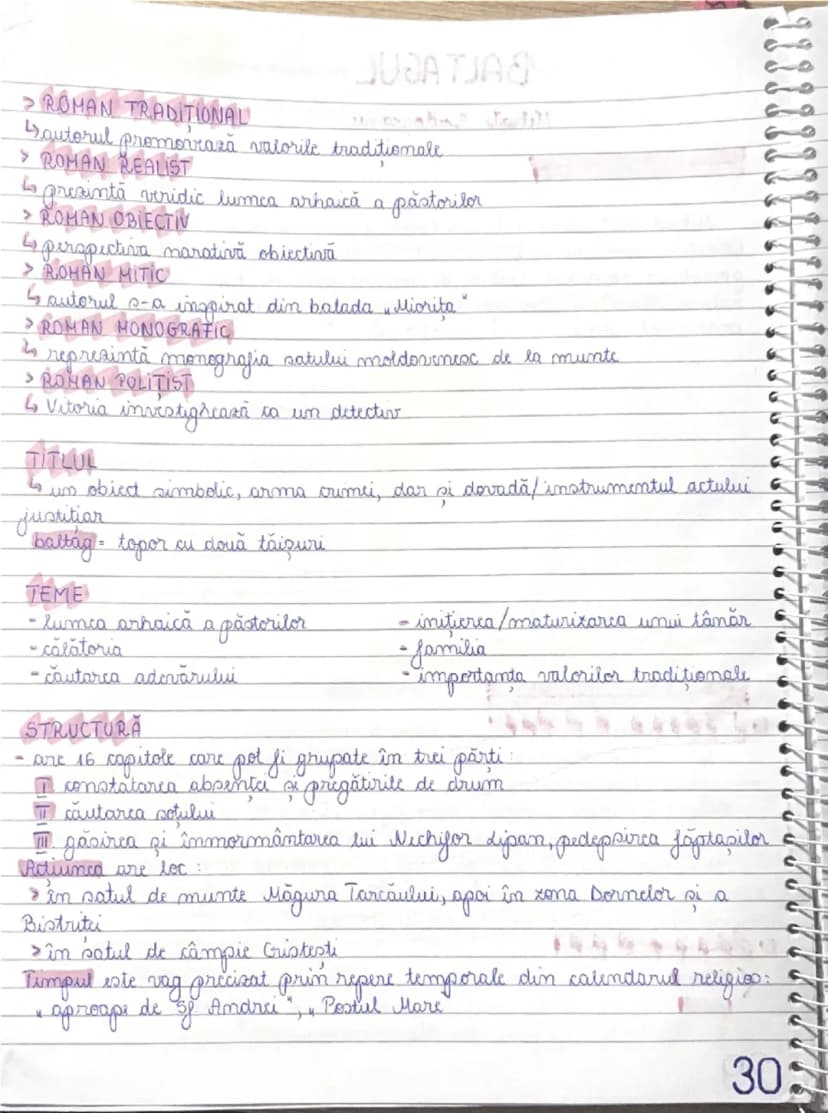 BALTAGUL
> ROMAN TRADIȚIONAL
↳ autorul promovează valorile tradiționale
> ROMAN REALIST
↳ prezintă veridic lumea arhaică a păstorilor
> ROMAN OBIECTIV
↳ perspectiva narativă obiectivă
> ROMAN MITIC
↳ autorul s-a inspirat din balada „Miorița"
> ROMAN MONOGRAFIC
↳ reprezintă monografia satului moldovenesc de la munte
> ROMAN POLIȚIST
↳ Vitoria investighează ca un detectiv
TITLUL
↳ un obiect simbolic, arma crimei, dar și dovadă/instrumentul actului
justițiar
baltag = topor cu două tăișuri
TEME
- lumea arhaică a păstorilor
- călătoria
- căutarea adevărului
- inițierea/maturizarea unui tânăr
- familia
- importanța valorilor tradiționale
STRUCTURĂ
- are 16 capitole care pot fi grupate în trei părți:
I constatarea absenței și pregătirile de drum
II căutarea soțului
III găsirea și înmormântarea lui Nechifor Lipan, pedepsirea făptașilor
Acțiunea are loc:
> în satul de munte Măgura Tarcăului, apoi în zona Dornelor și a
Bistriței
> în satul de câmpie Cristești
Timpul este vag precizat prin repere temporale din calendarul religios:
„aproape de Sf Andrei", „Postul Mare
30